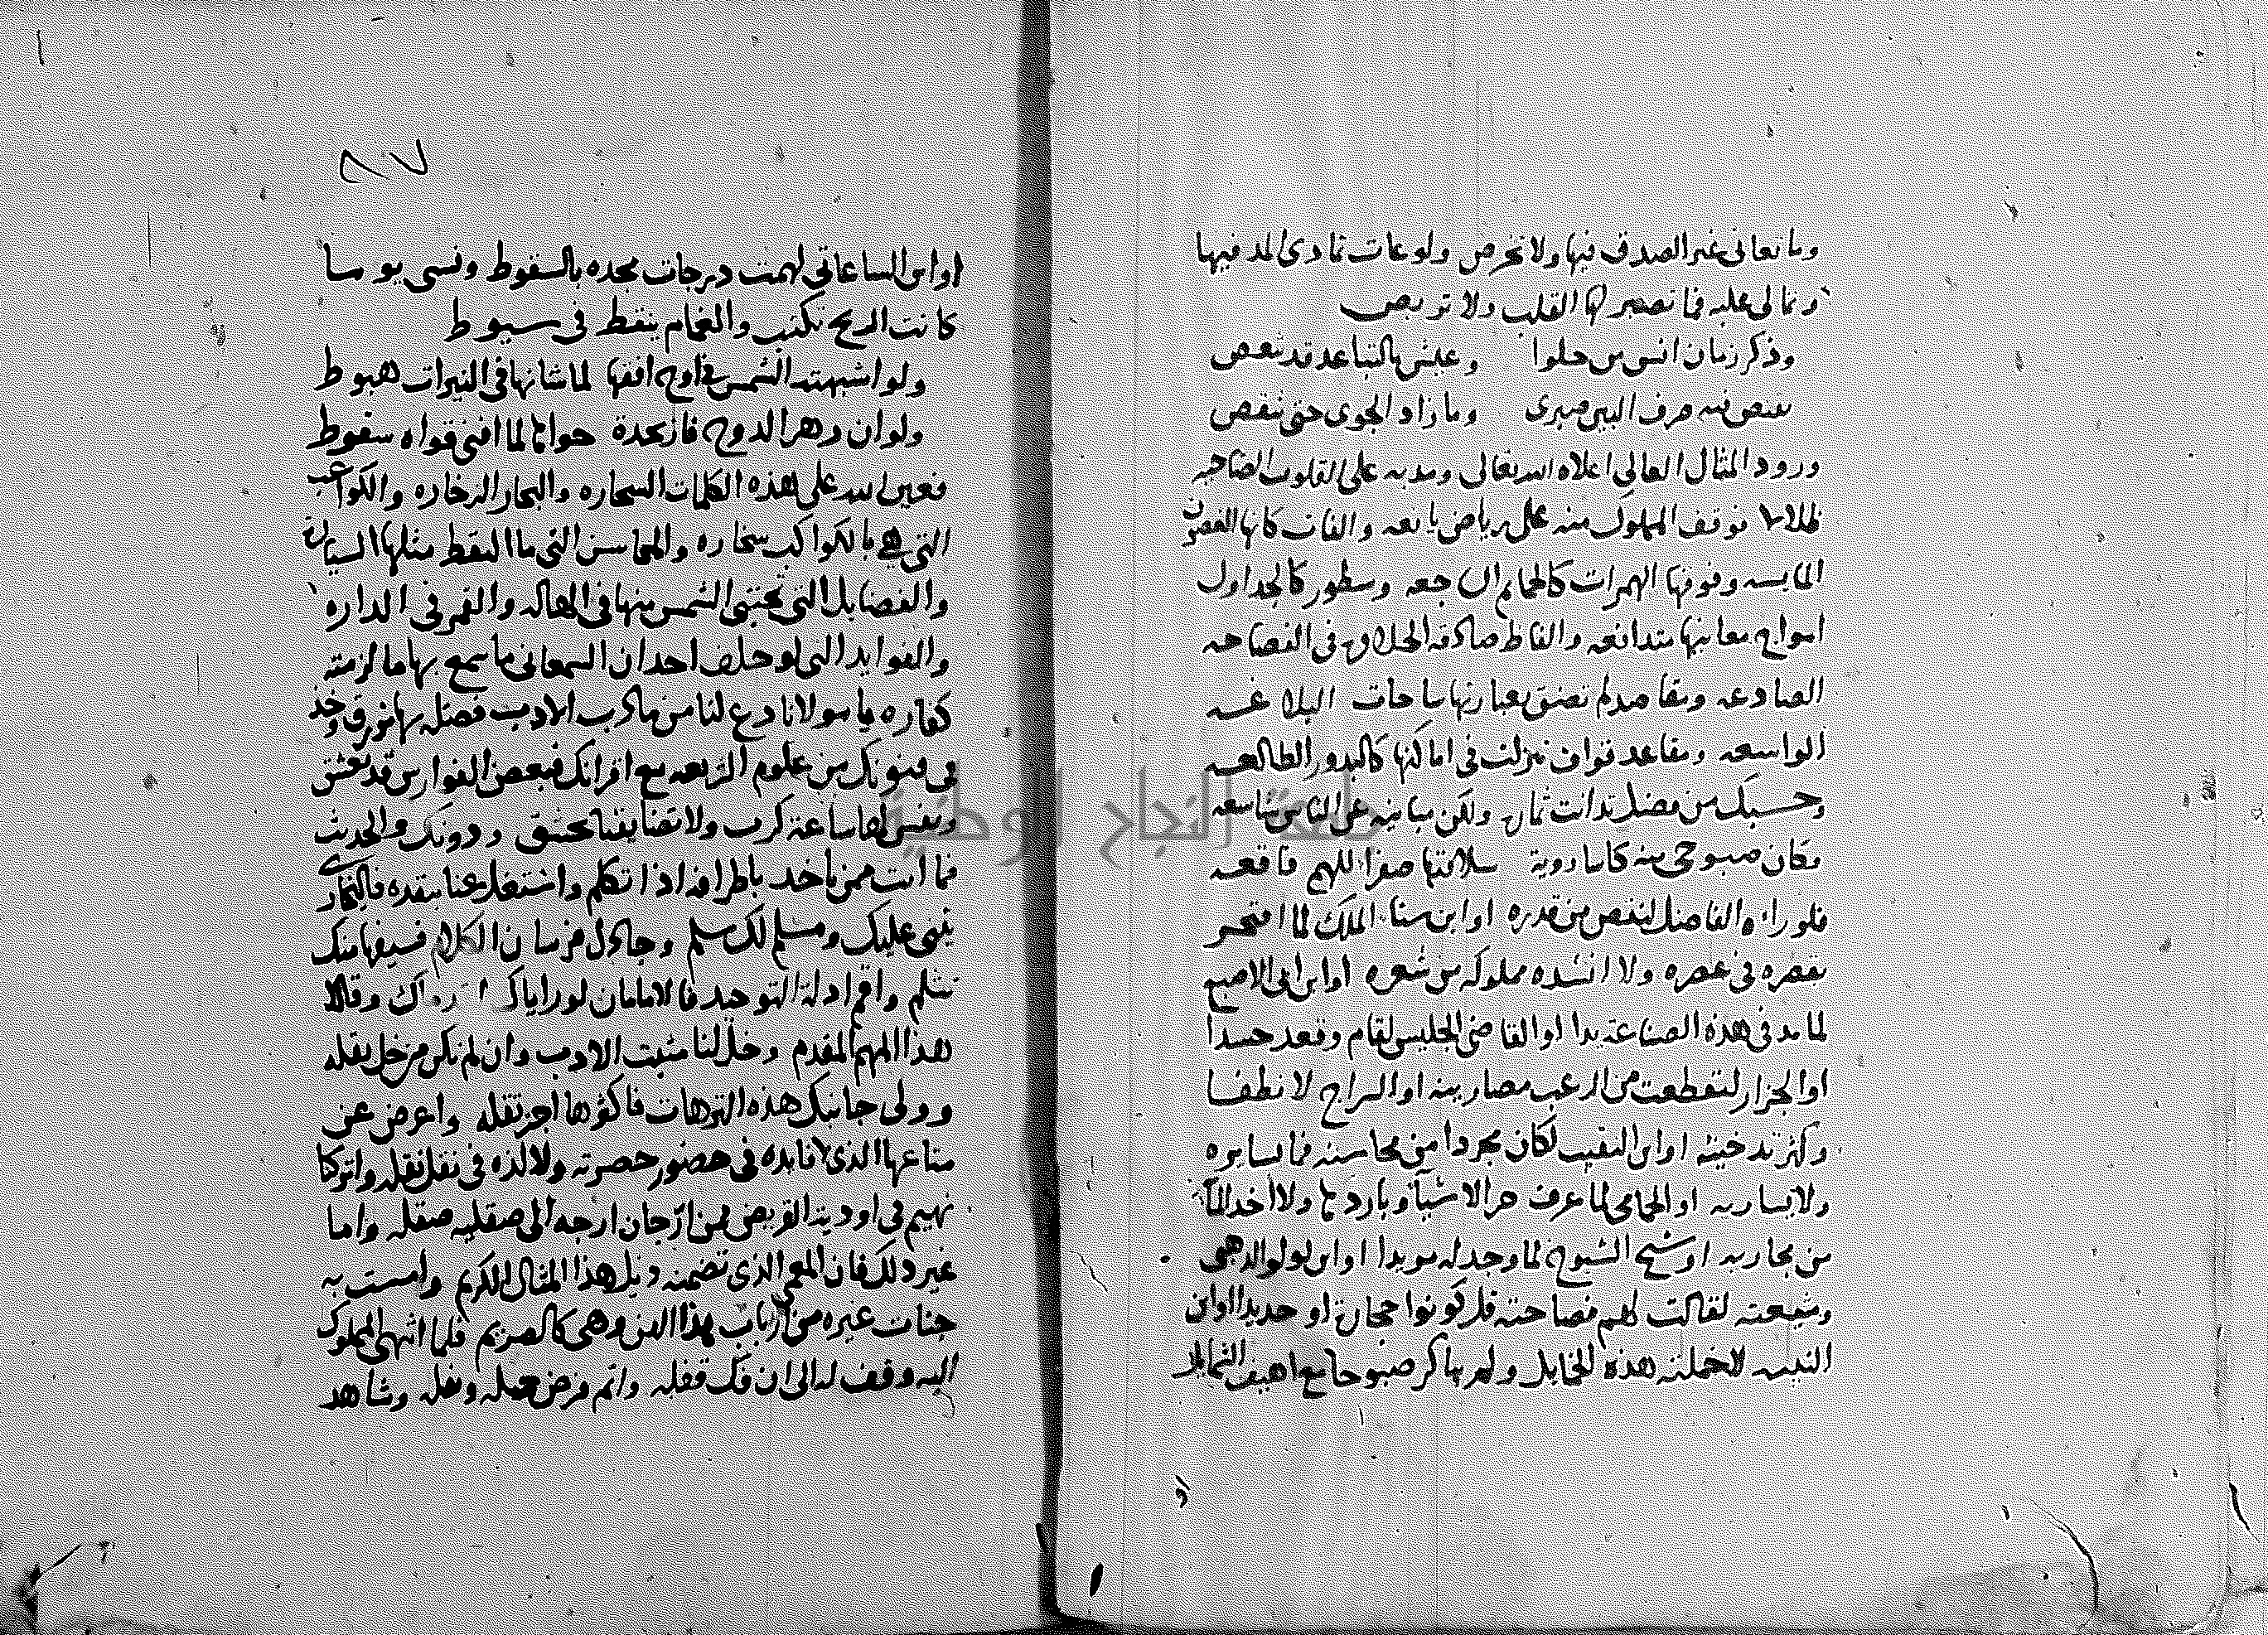 وما تعانى غير الصدق فيها ولا تخرص ولوعات تمادى لمد فيها
وتمالى عليه فما تصبر لها القلب ولا تربص
وذكر زمان انس بن حلوا وعيش بالتباعد قد تنغص
صرف البين صبرى وما زاد الجوى حتى تنقص
ورود المثال العالى اعلاه الله تعالى ومد به على القلوب الضاحيه
ظلالا فوقف المملوك منه على رياض يانعه والفات كانها الغصون
المايسه وفوقها الهمزات كالحمايم الساجعه وسطور كالجداول
امواج معانيها متدافعه والفاظ صادقه الحلاوه فى الفصاحه
الصادعه ومقاصد لم تضق بعبارتها ساحات البلاغه
الواسعه ومقاعد قواف نزلت فى اماكنها كالبدور الطالعه
وحسبك من فضل تدانت ثماره ولكن مبانيه على الناس شاسعه
فكان صبوحى منه كاسا روية سلافتها صفرا للهم فاقعه
فلو راه الفاضل لنقص من قدره او ابن سنا الملك لما افتخر
بقصره فى عصره ولا انشده مملوكه من شعره او ابن ابى الاصبع
لما مد فى هذه الصناعة يدا او القاضى الجليس لقام وقعد حسدا
او الجزار لتقطعت من الرعب مصارينه او السراج لانطفا
وكثر تدخينه او ابن النقيب لكان مجردا من محاسنه فما يسايره
ولا يساريه او الحمامى لما عرف حر الاشيا وباردها ولا اخذ الما
من مجاريه او شيخ الشيوخ لما وجد له مويدا او ابن لولو الذهبى
وشيعته لقالت لهم فصاحته قل كونوا حجارة او حديدا او ابن
النبيه لاخملته هذه الخمايل ولم يباكر صبوحا مع اهيف الشمايل
او
٨٧
او ابن الساعاتى لهمت درجات مجده بالسقوط ونسى يوما
كانت الريح تكتب والغمام ينقط فى سيوط
ولو اشبهته الشمس فى اوج افقها لما شانها فى النيرات هبوط
ولو ان زهر الدوح فاز بعدة حواها لما افنى قواه سقوط
فعين الله على هذه الكلمات السحاره والبحار الزخاره والكواعب
التى هى بالكواكب سخاره والمحاسن التى ما التقط مثلها السيارة
والفضايل التى تختبى الشمس منها فى الهاله والقمر فى الداره
والفوايد التى لو حلف احد ان السمعانى ما سمع بها ما لزمته
كفاره يا مولانا دع لنا من مارب الادب فضله بها نرزق وخذ
فى فنونك من علوم الشريعه مع اقرانك فبعض الفوارس قد تعشق
ونفس لها ساعة كرب ولا تضايقنا بخنق ودونك والحديث
فما انت ممن ياخذ باطرافه اذا تكلم واشتغل عنا بنقده فالبخارى
يثنى عليك ومسلم لك سلم وجادل فرسان الكلام فسيفها منك
تثلم واقم ادلة التوحيد فالامامان لو راياك وقالا
هذا المهم المقدم وخل لنا مثبت الادب وان لم نكن من خل بقله
وولى جانبك هذه الترهات فاكثرها اجز نقله واعرض عن
متاعها الذى لا فايده فى حضور حضرته ولا لذه فى نقل نقله واتركنا
نهيم فى اودية القريض فمن ارجان ارجه الى صقليه صقله واما
غير ذلك فان المعمى الذى تضمنه ذيل هذا المثال الكريم وامست به
جنات غيره من ارباب هذا الفن وهى كالصريم فلما انتهى المملوك
اليه وقف له الى ان فك قفله واتم فرض حله ونفله وشاهد
جامعة النجاح الوطنية